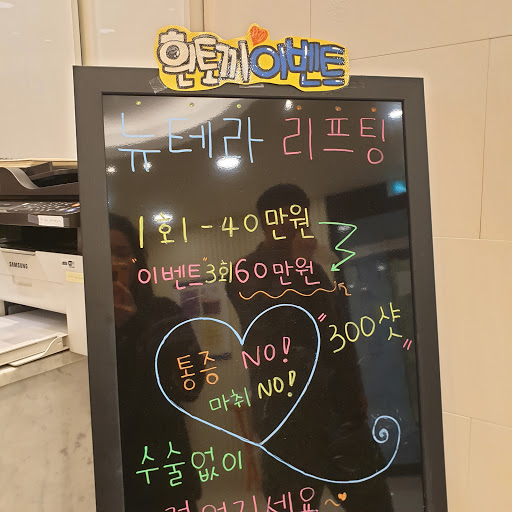 흰토끼이벤트
뉴테라 리프팅
1회-40만원
"이벤트"3회60만원
"300샷"
통증 NO!
마취 NO!
수술없이
SAMSUNG